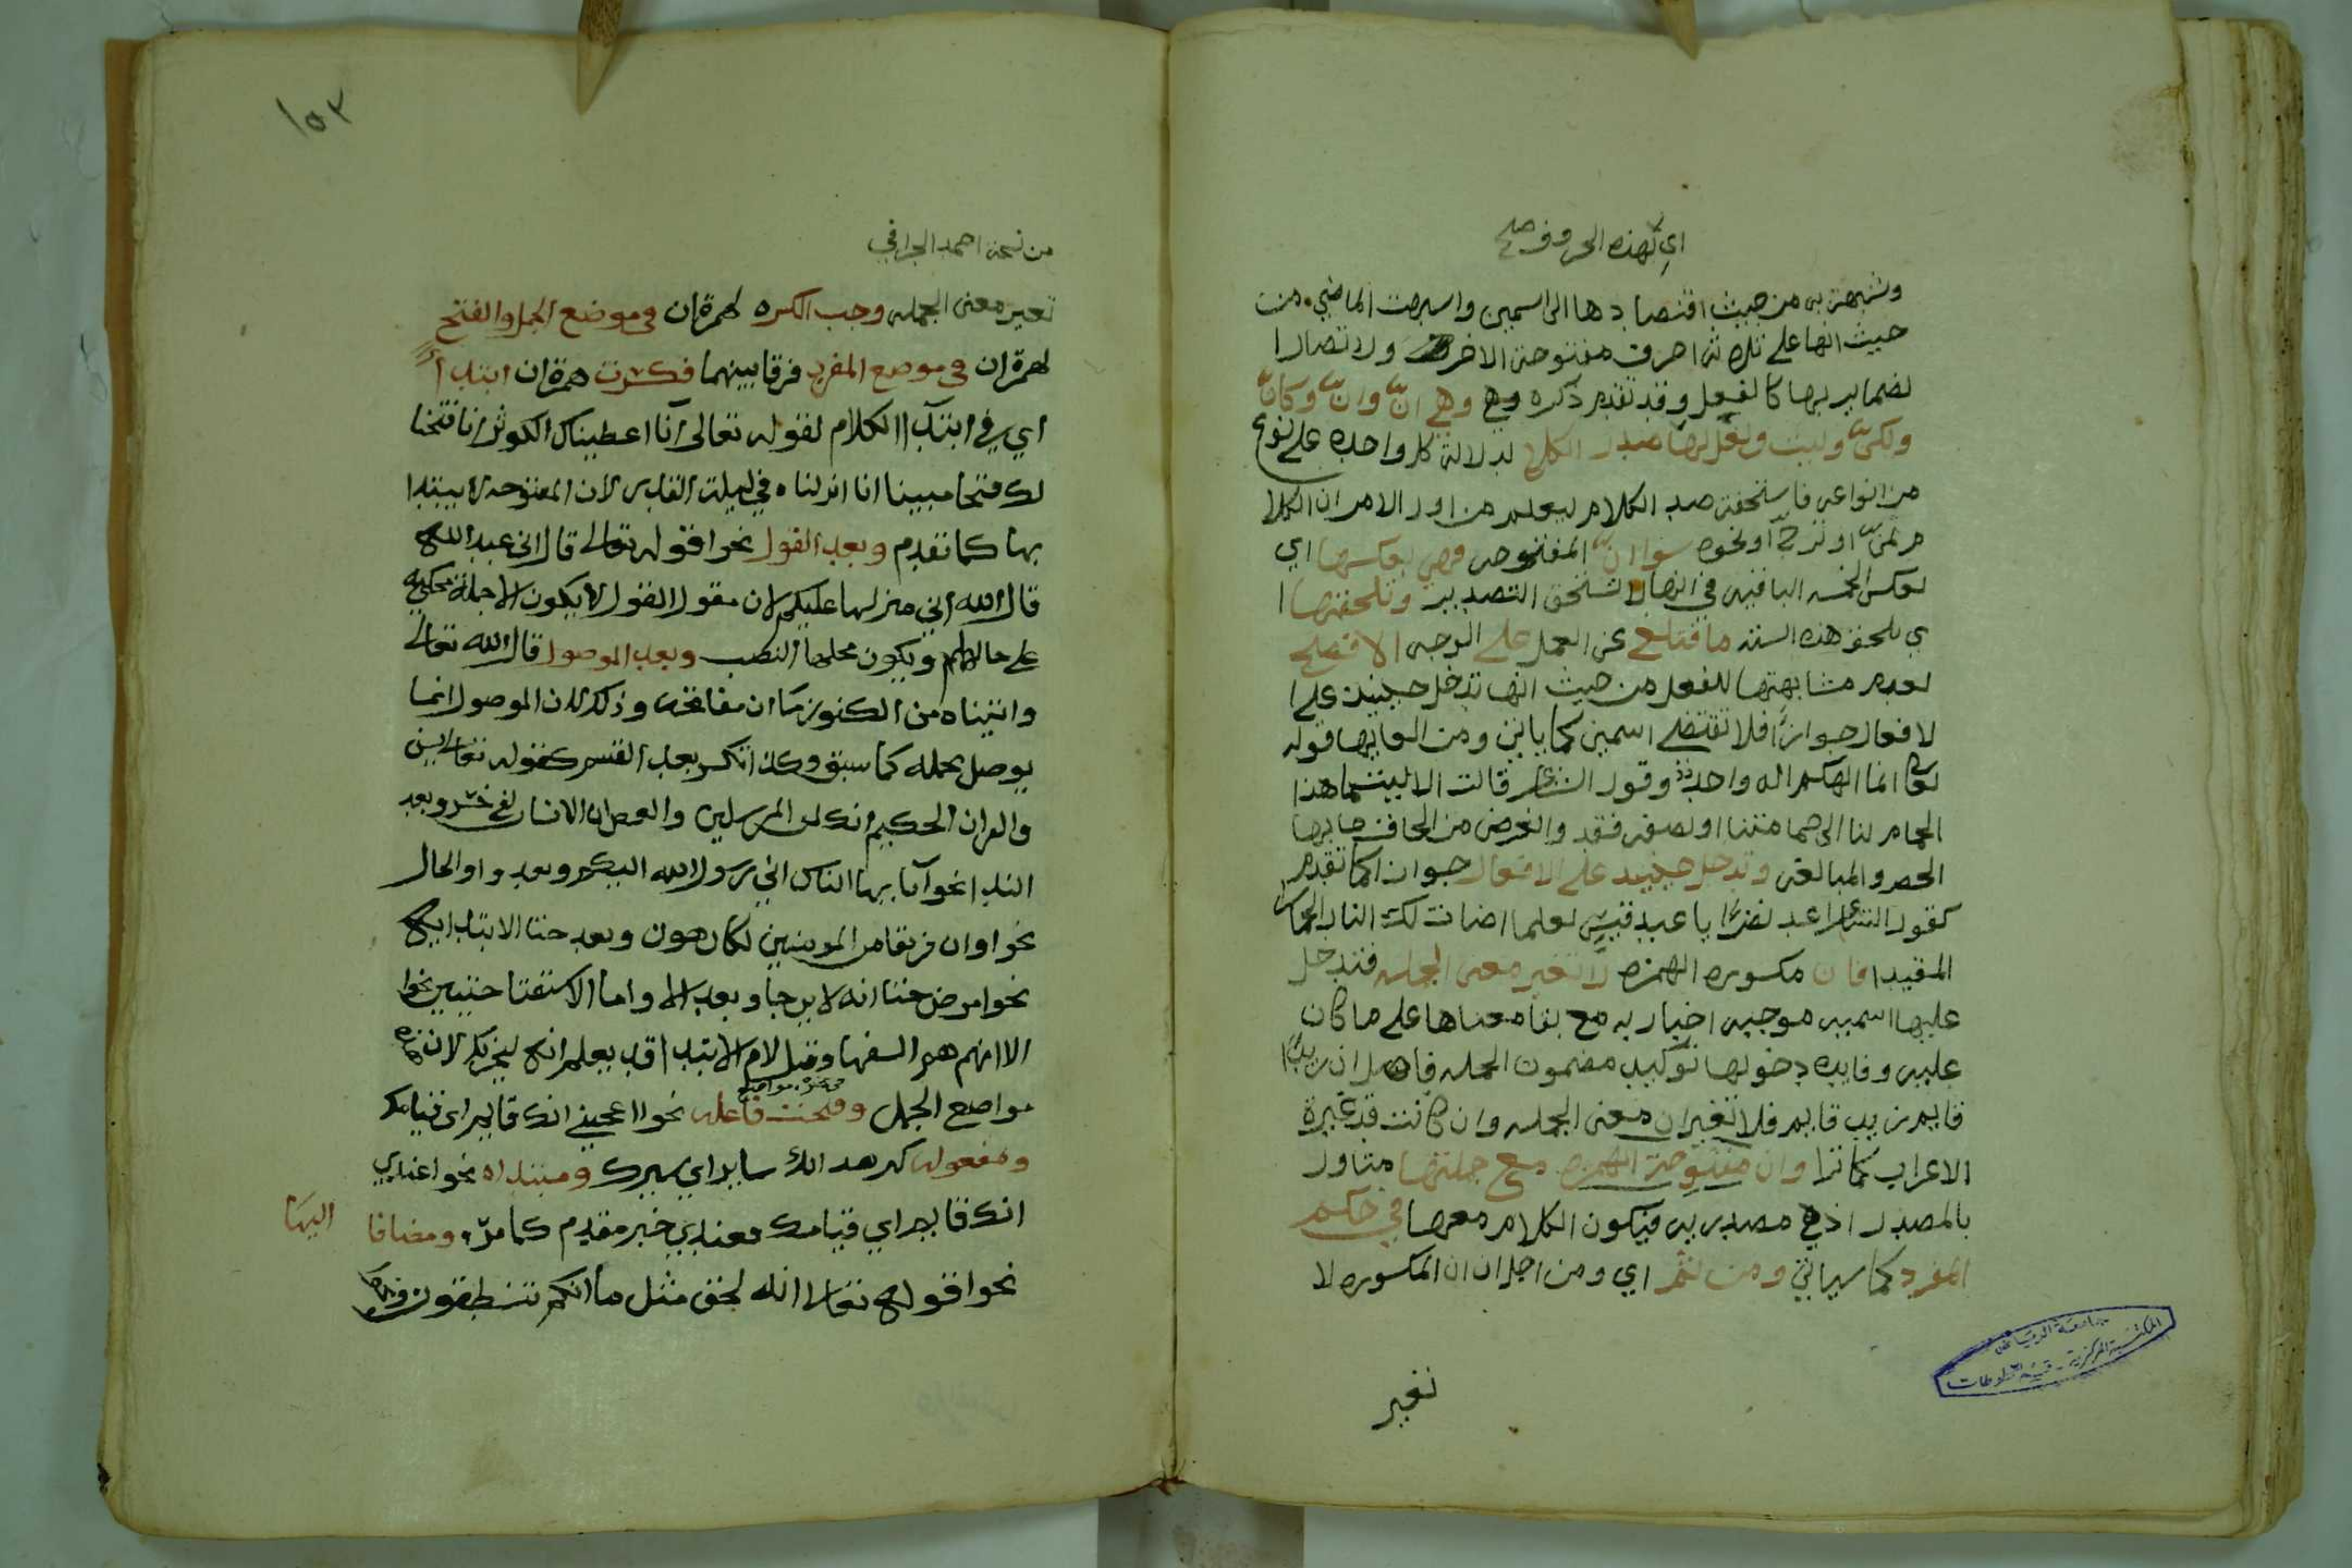 اي لهذه الحروف صح
وشبهته به من حيث اقتضا دها الى اسمين واسبهت الماضي من
حيث انها على ثلاثة احرف مفتوحة الاخر ولاتصال ا
لضماير بها كالفعل وقد تقدم ذكره وهي انّ وانّ وكانّ
ولكنّ وليت ولعل لها صدر الكلام لدلالة كل واحده على نوع
من انواعه فاستحقت صدر الكلام ليعلم من اول الامر ان الكلا
م تمنٍ او ترجٍّ او نحوه سوا انّ المفتوحه فهي بعكسها اي
بعكس الخمسه الباقيه في انها لا تستحق التصدير وتلحقها ا
ي تلحق هذه السته ما فتلغى عن العمل على الوجه الافصح
لعدم مشابهتها للفعل من حيث انها تدخل حينيذ على ا
لافعال جوازًا فلا تقتضي اسمين كما ياتي ومن الغايها قوله
تعالى انما الهكم اله واحد وقول الشاعر قالت الا ليتما هذا
الحمام لنا الى حمامتنا او نصفه فقد والغرض من الحاق ما بها
الحصر والمبالغه وتدخل حينيذ على الافعال جوازا كما تقدم
كقول الشاعر اعد نظرًا يا عبد قيس لعلما اضات لك النار الحمار
المقيدا فان مكسوره الهمزه لا تغير معنى الجمله فتدخل
عليها اسميه موجبه اخباريه مع بقا معناها على ما كان
عليه وفايده دخولها توكيد مضمون الجمله فاصل ان زيدًا
قايم زيد قايم فلا تغير ان معنى الجمله وان كانت قد غيرة
الاعراب كما ترا وان مفتوحة الهمزه مع جملتها متاول
بالمصدر اذ هي مصدريه فيكون الكلام معها في حكم
المفرد كما سياتي ومن ثم اي ومن اجل ان ان المكسوره لا
تغير
جامعة الرياض
المكتبة المركزية - قسم المخطوطات
١٥٢
من نسخة احمد الجرافي
تغير معنى الجمله وجب الكسره لهمزة ان في موضع الجمل والفتح
لهمزة ان في موضع المفرد فرقا بينهما فكسرت همزة ان ابتدا أ
اي في ابتدآ الكلام لقوله تعالى انا اعطيناك الكوثر انا فتحنا
لك فتحا مبينا انا انزلناه في ليلة القدر لان المفتوحه لا يبتدا
بها كما تقدم وبعد القول نحو قوله تعالى قال اني عبد الله
قال الله اني منزلها عليكم لان مقول القول لا يكون الا جملة محكيه
على حالها ويكون محلها النصب وبعد الموصول قال الله تعالى
واتيناه من الكنوز ما ان مفاتحه وذلك لان الموصول انما
يوصل بجمله كما سبق وكذا تكسر بعد القسم كقوله تعالى يس
والقران الحكيم انك لمن المرسلين والعصر ان الانسان لفي خسر وبعد
الندا نحو آيا ايها الناس اني رسول الله اليكم وبعد واو الحال
نحو وان فريقا من المومنين لكارهون وبعد حتا الابتدائيه
نحو مرض حتا انه لا يرجا وبعد الا واما الاستفتاحيتين نحو
الا انهم هم السفها وقبل لام الابتدا قد يعلم انه ليحزنك لان هذه
مواضع الجمل وفتحت فاعله نحو اعجبني انك قايم اي قيامك
ومفعوله كرهت انك ساير اي سيرك ومبتداه نحو عندي
انك قايم اي قيامك فعندي خبر مقدم كما مرّ ومضافا اليها
نحو قوله تعالى انه لحق مثل ما انكم تنطقون